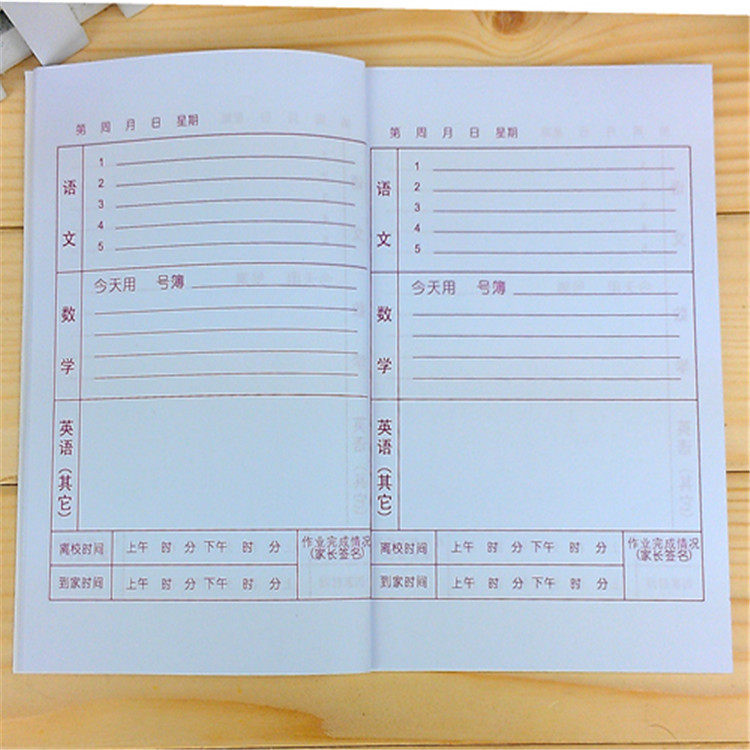 第 周 月 日 星期
语文
1
2
3
4
5
数学
今天用 号簿
英语(其它)
离校时间 上午 时 分 下午 时 分
到家时间 上午 时 分 下午 时 分
作业完成情况
(家长签名)
第 周 月 日 星期
语文
1
2
3
4
5
数学
今天用 号簿
英语(其它)
离校时间 上午 时 分 下午 时 分
到家时间 上午 时 分 下午 时 分
作业完成情况
(家长签名)